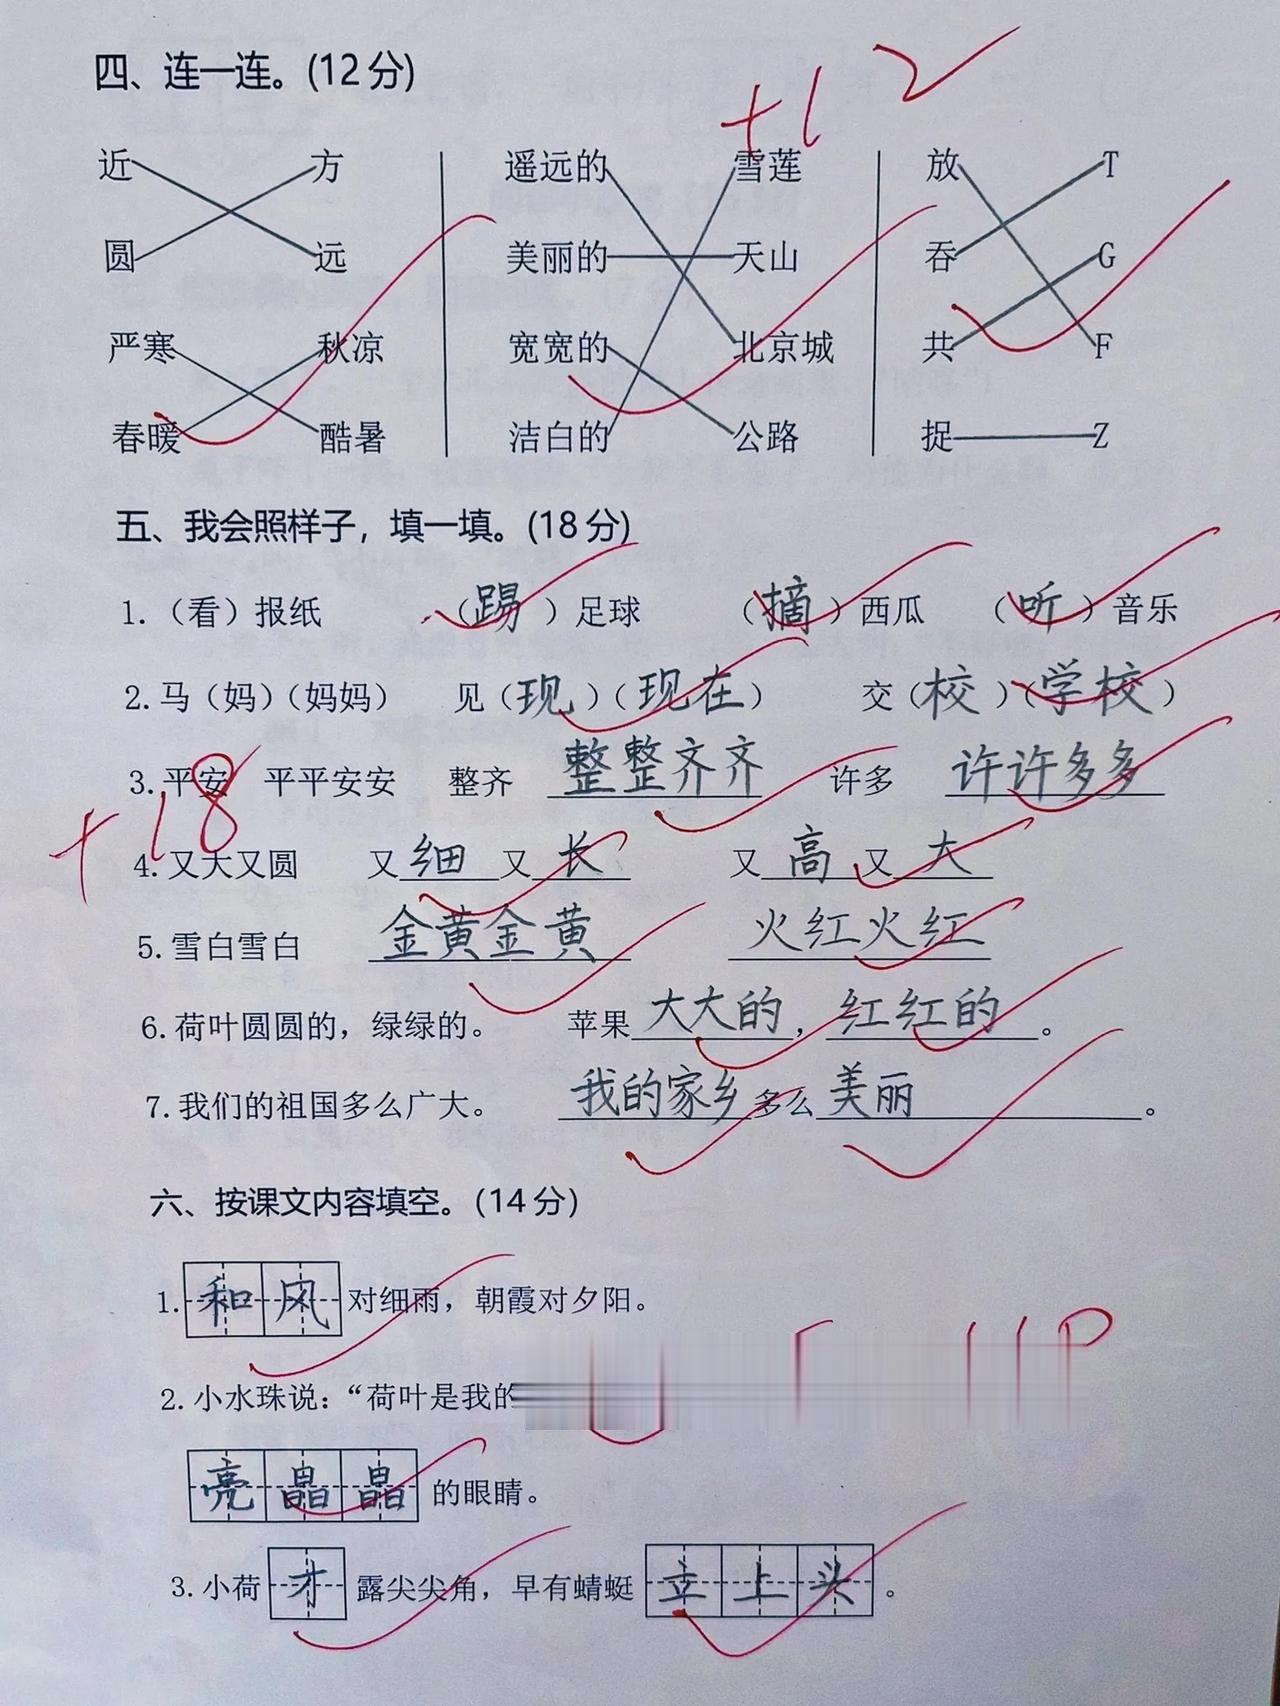 四、连一连。(12分)
+12
近 方 遥远的 雪莲 放 T
圆 远 美丽的 天山 吞 G
严寒 秋凉 宽宽的 北京城 共 F
春暖 酷暑 洁白的 公路 捉 Z
五、我会照样子，填一填。(18分)
1.（看）报纸 （踢）足球 （摘）西瓜 （听）音乐
2.马（妈）（妈妈） 见（现）（现在） 交（校）（学校）
3.平安 平平安安 整齐 整整齐齐 许多 许许多多
+18
4.又大又圆 又细又长 又高又大
5.雪白雪白 金黄金黄 火红火红
6.荷叶圆圆的，绿绿的。 苹果大大的，红红的。
7.我们的祖国多么广大。 我的家乡多么美丽。
六、按课文内容填空。(14分)
1.和风对细雨，朝霞对夕阳。
2.小水珠说：“荷叶是我的
亮晶晶的眼睛。
3.小荷才露尖尖角，早有蜻蜓立上头。